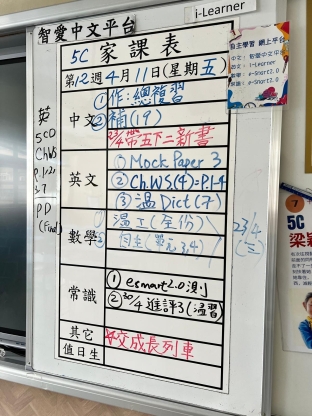 i-Learner
智愛中文平台
5C 家課表
第12週4月11日(星期五)
中文
①作:總複習
②補(19)
2/4帶五下二新書
英文
①Mock Paper 3
②Ch.WS(4)=P.1-4
③溫Dict(7)
數學
①溫工(全份)
23/4
(三)
常識
①esmart2.0測
②30/4進評3(溫習)
其它
交成長列車
值日生
英
5C0
Ch.WS
P.1-21
3.7
P.D
(Final)
自主學習 網上平台
中文: 智愛中文平台
英文: i-Learner
數學: e-Smart2.0
常識: e-Smart2.0
7
5C
梁